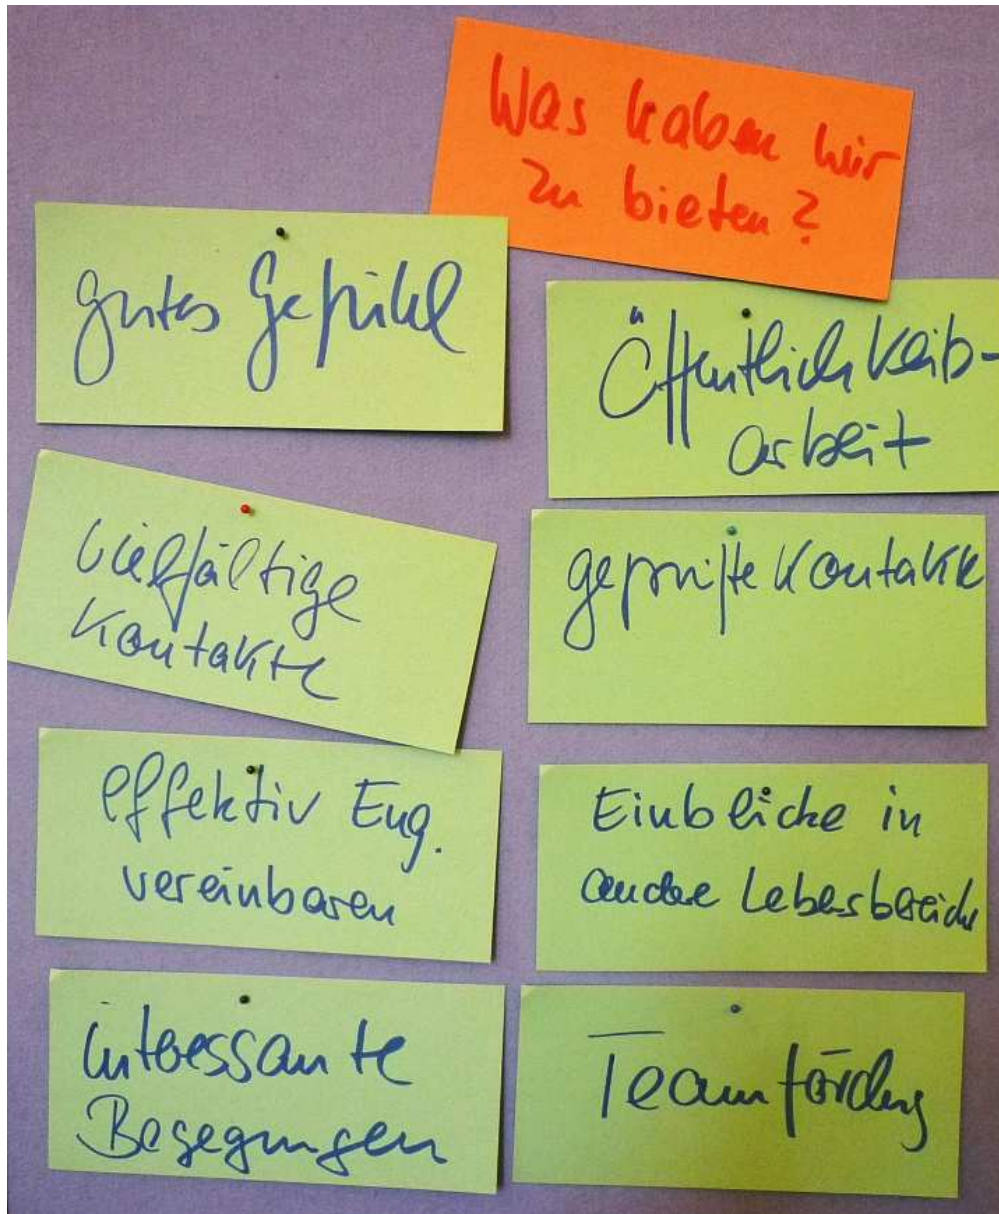 Was haben wir
zu bieten?
gutes Gefühl
Öffentlichkeits-
arbeit
vielfältige
Kontakte
geprüfte Kontakte
effektiv Eng.
vereinbaren
Einblicke in
andere Lebensbereiche
interessante
Begegnungen
Teamförderg